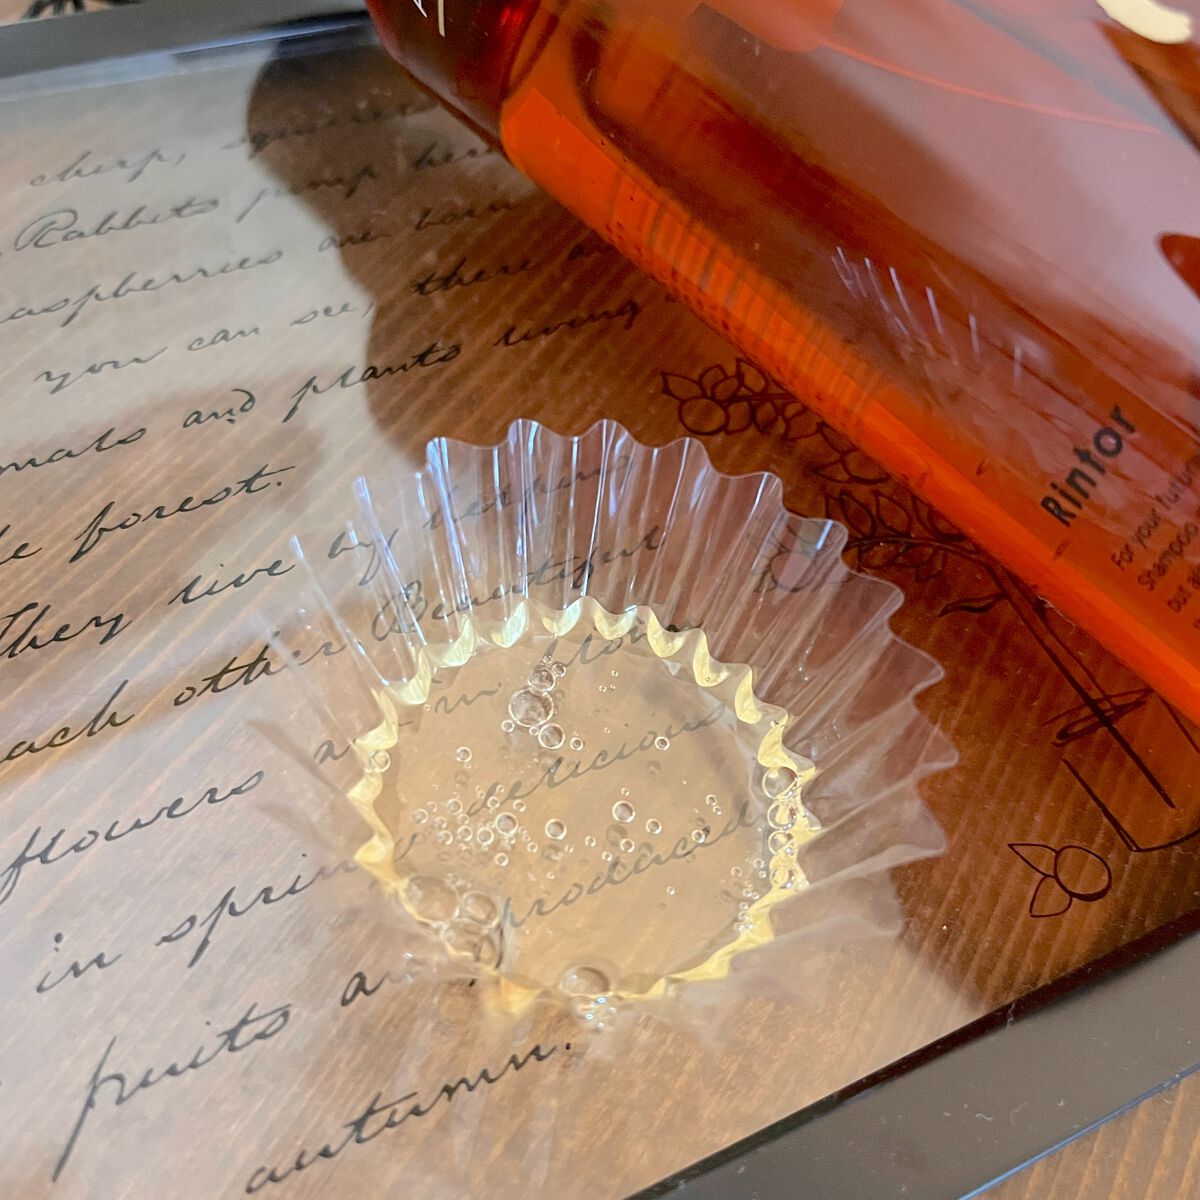 chirp,
Rabbits jump here
raspberries are born
you can see, there a
mals and plants living
forest.
They live by helping
each other. Beautiful
flowers bloom
in spring delicious
fruits are produced
autumn.
Rintor
For your future
Shampoo